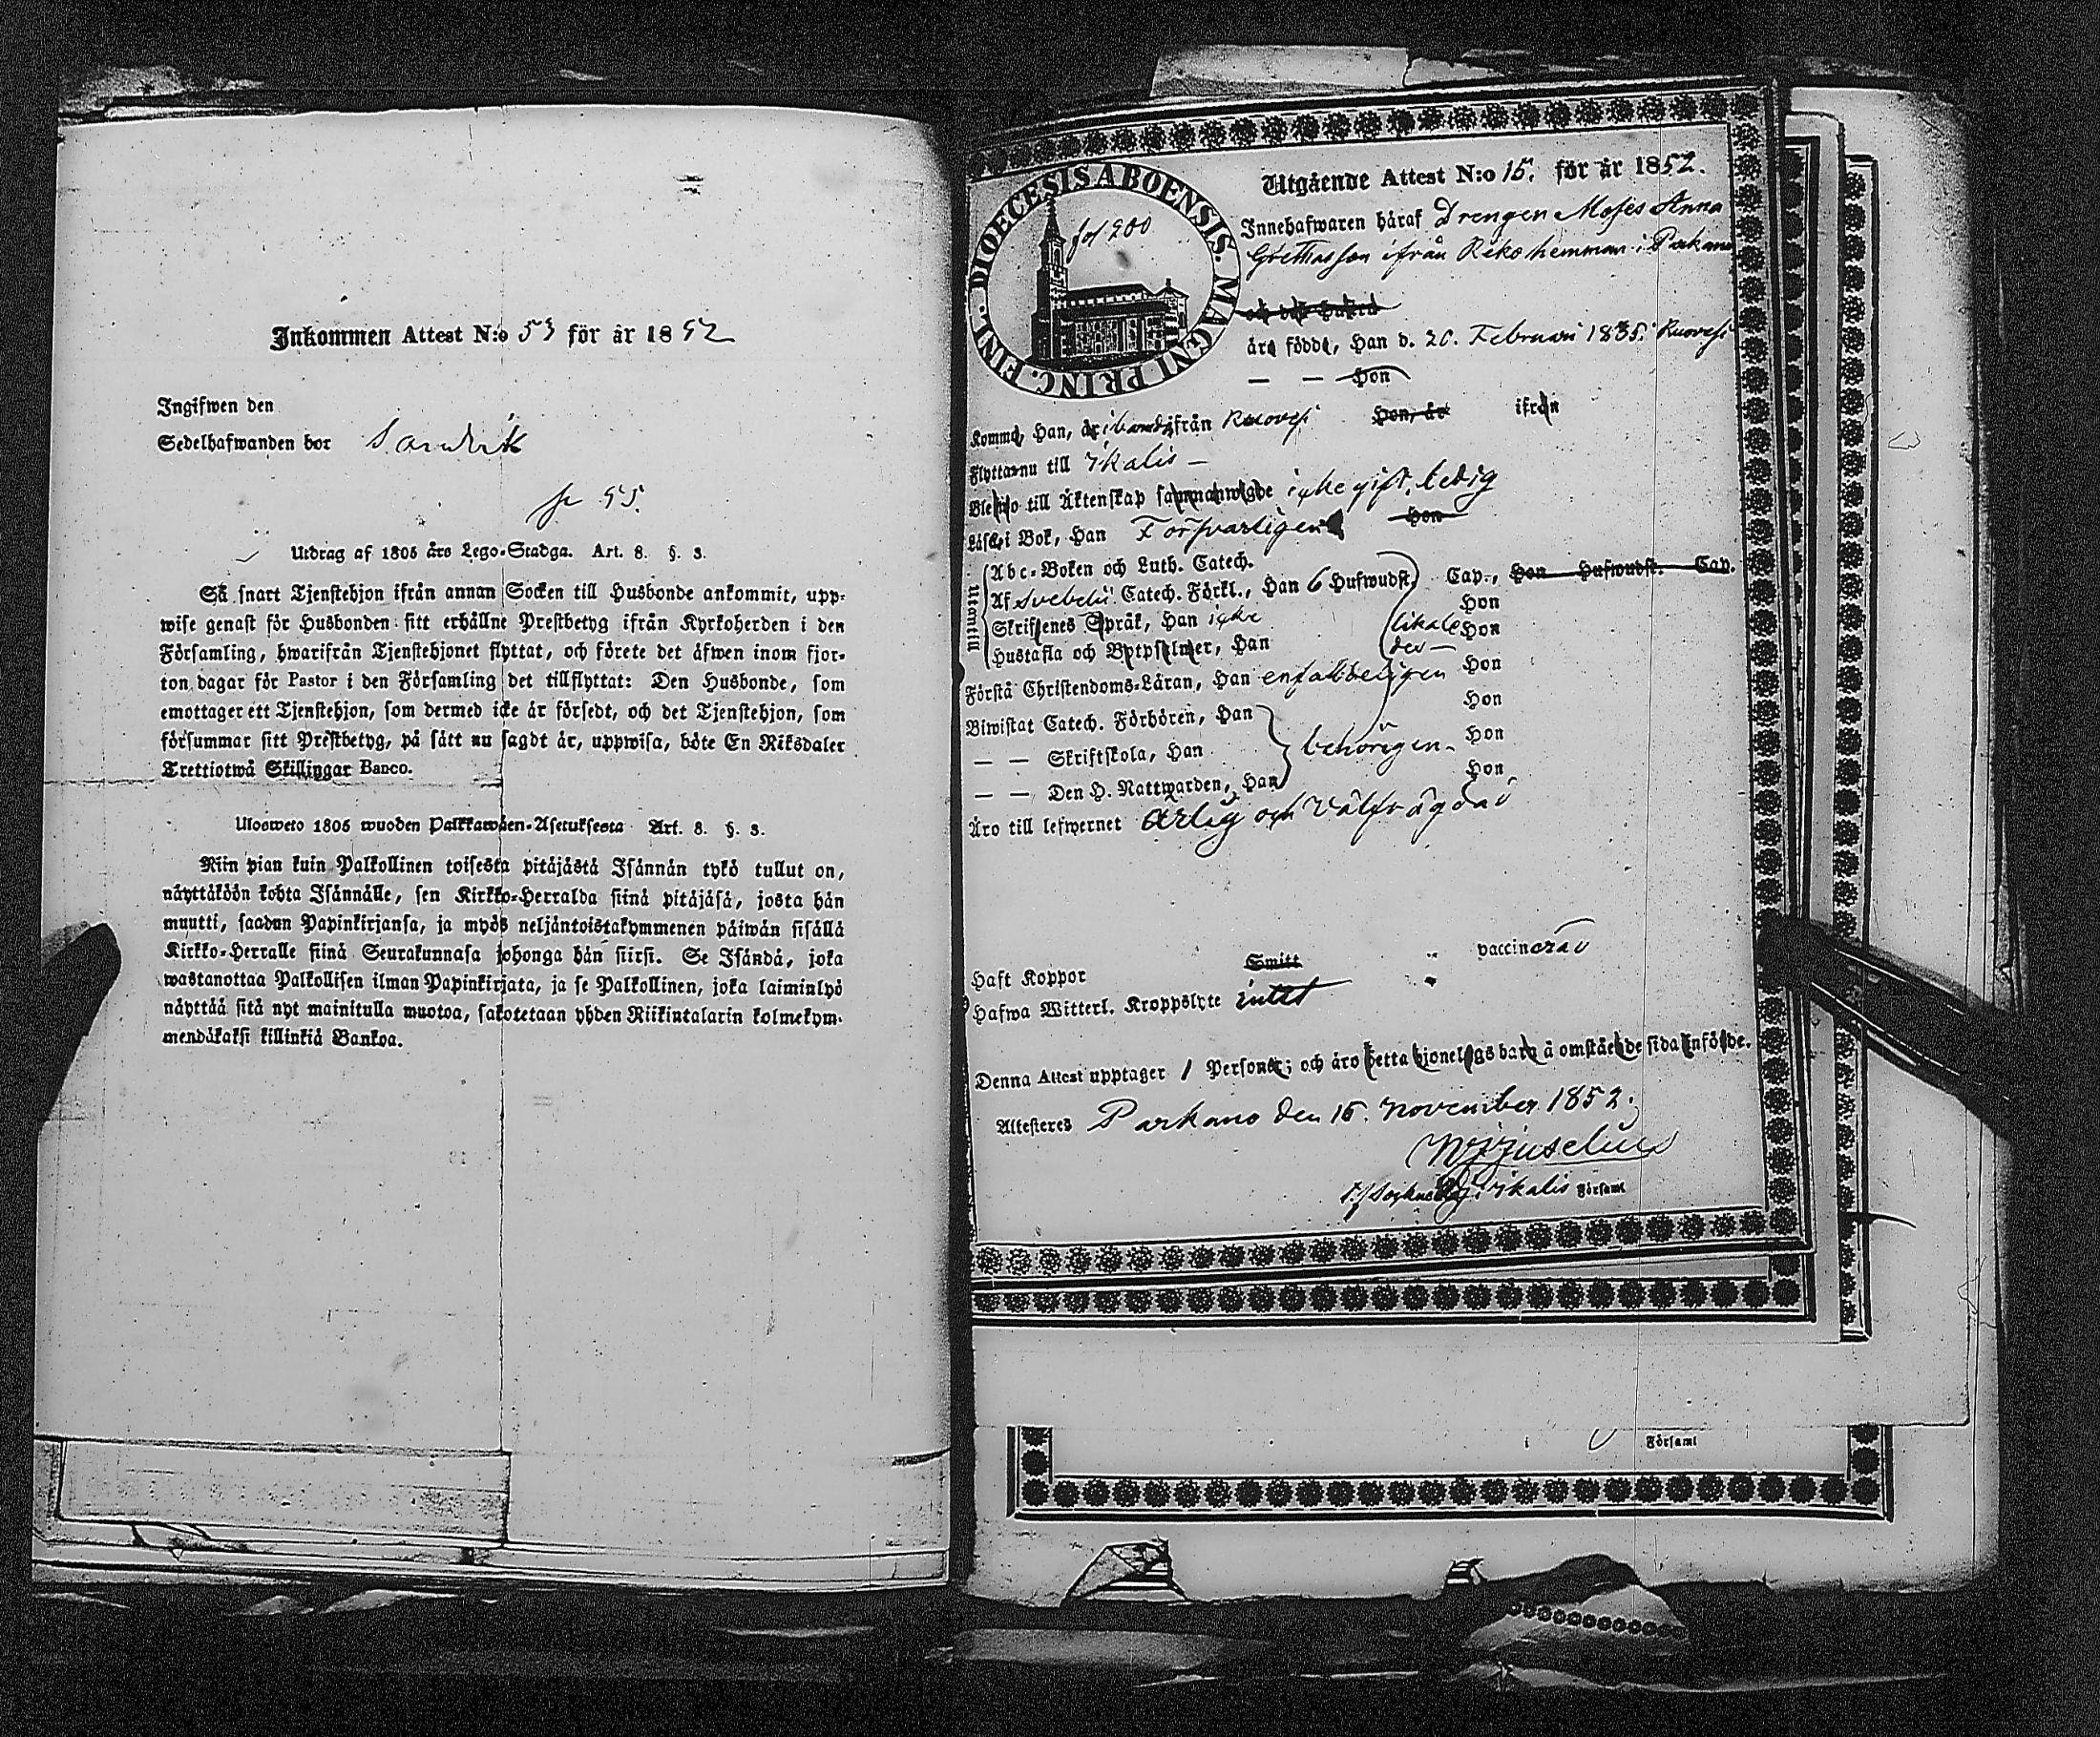 Inkommen Attest N:o 53 för år 1852
Ingifwen den
Sedelhafwanden bor
55.
Utdrag af 1805 års Lego-Stadga. Art. 8. §. 3.
Så snart Tjenstehjon ifrån annan Socken till Husbonde ankommit, upp-
wise genast för Husbonden sitt erhållne Prestbetyg ifrån Kyrkoherden i den
Församling, hwarifrån Tjenstehjonet flyttat, och förete det åfwen inom fjor-
ton dagar för Pastor i den Församling det tillflyttat: Den Husbonde, som
emottager ett Tjenstehjon, som dermed icke år försedt, och det Tjenstehjon, som
försummar sitt Prestbetyg, på sått nu sagdt år, uppwisa, böte En Riksdaler
Trettiotwå Skillingar Banco.
Ulosweto 1805 wuoden Palkkawäen-Asetuksesta Art. 8. §. 3.
Niin pian kuin Palkollinen toisesta pitäjästä Isännän tykö tullut on,
näyttäköön kohta Isännälle, sen Kirkko-Herralda siinä pitäjäsä, josta hän
muutti, saadun Papinkirjansa, ja myös neljäntoistakymmenen päiwän sisällä
Kirkko-Herralle siinä Seurakunnasa johonga hän siirsi. Se Isändä, joka
wastanottaa Palkollisen ilman Papinkirjata, ja se Palkollinen, joka laiminlyö
näyttää sitä nyt mainitulla muotoa, sakotetaan yhden Riikintalarin kolmekym-
mendäkaksi killinkiä Bankoa.
DIOECESIS ABOENSIS. MAGNI PRINC. FINL.
fol 200
Utgående Attest N:o 15. för år 1852.
Innehafwaren håraf Drengen Moses Anna
Grethasson ifrån Riko hemman i Parkano
och dess hustru
åro födde, Han d. 20. Februari 1835. Ruovesi
— — Hon
Komme, Han, år ifrån Ruovesi Hon, år ifrån
Flyttar nu till Ikalis —
Blefwo till Åktenskap sammanwigde icke gift, ledig
Låser i Bok, Han Försvarligen Hon
Utantill
Abc-Boken och Luth. Catech.
Af Svebelii Catech. Förkl., Han 6 Hufwudst. Cap., Hon Hufwudst. Cap.
Skriftenes Språk, Han icke Hon
Hustafla och Botpsalmer, Han likaledes Hon
Förstå Christendoms-Låran, Han enfaldeligen Hon
Biwistat Catech. Förhören, Han Hon
— — Skriftskola, Han behörigen. Hon
— — Den H. Nattwarden, Han Hon
Åro till lefwernet årlig och välfrågdad
Haft Koppor Smitt vaccinerad
Hafwa Witterl. Kroppslyte intet
Denna Attest upptager 1 Personer; och åro detta hjonelags barn å omstående sida införde.
Attesteres Parkano den 15. November 1852.
Ikalis Församl
i Församl